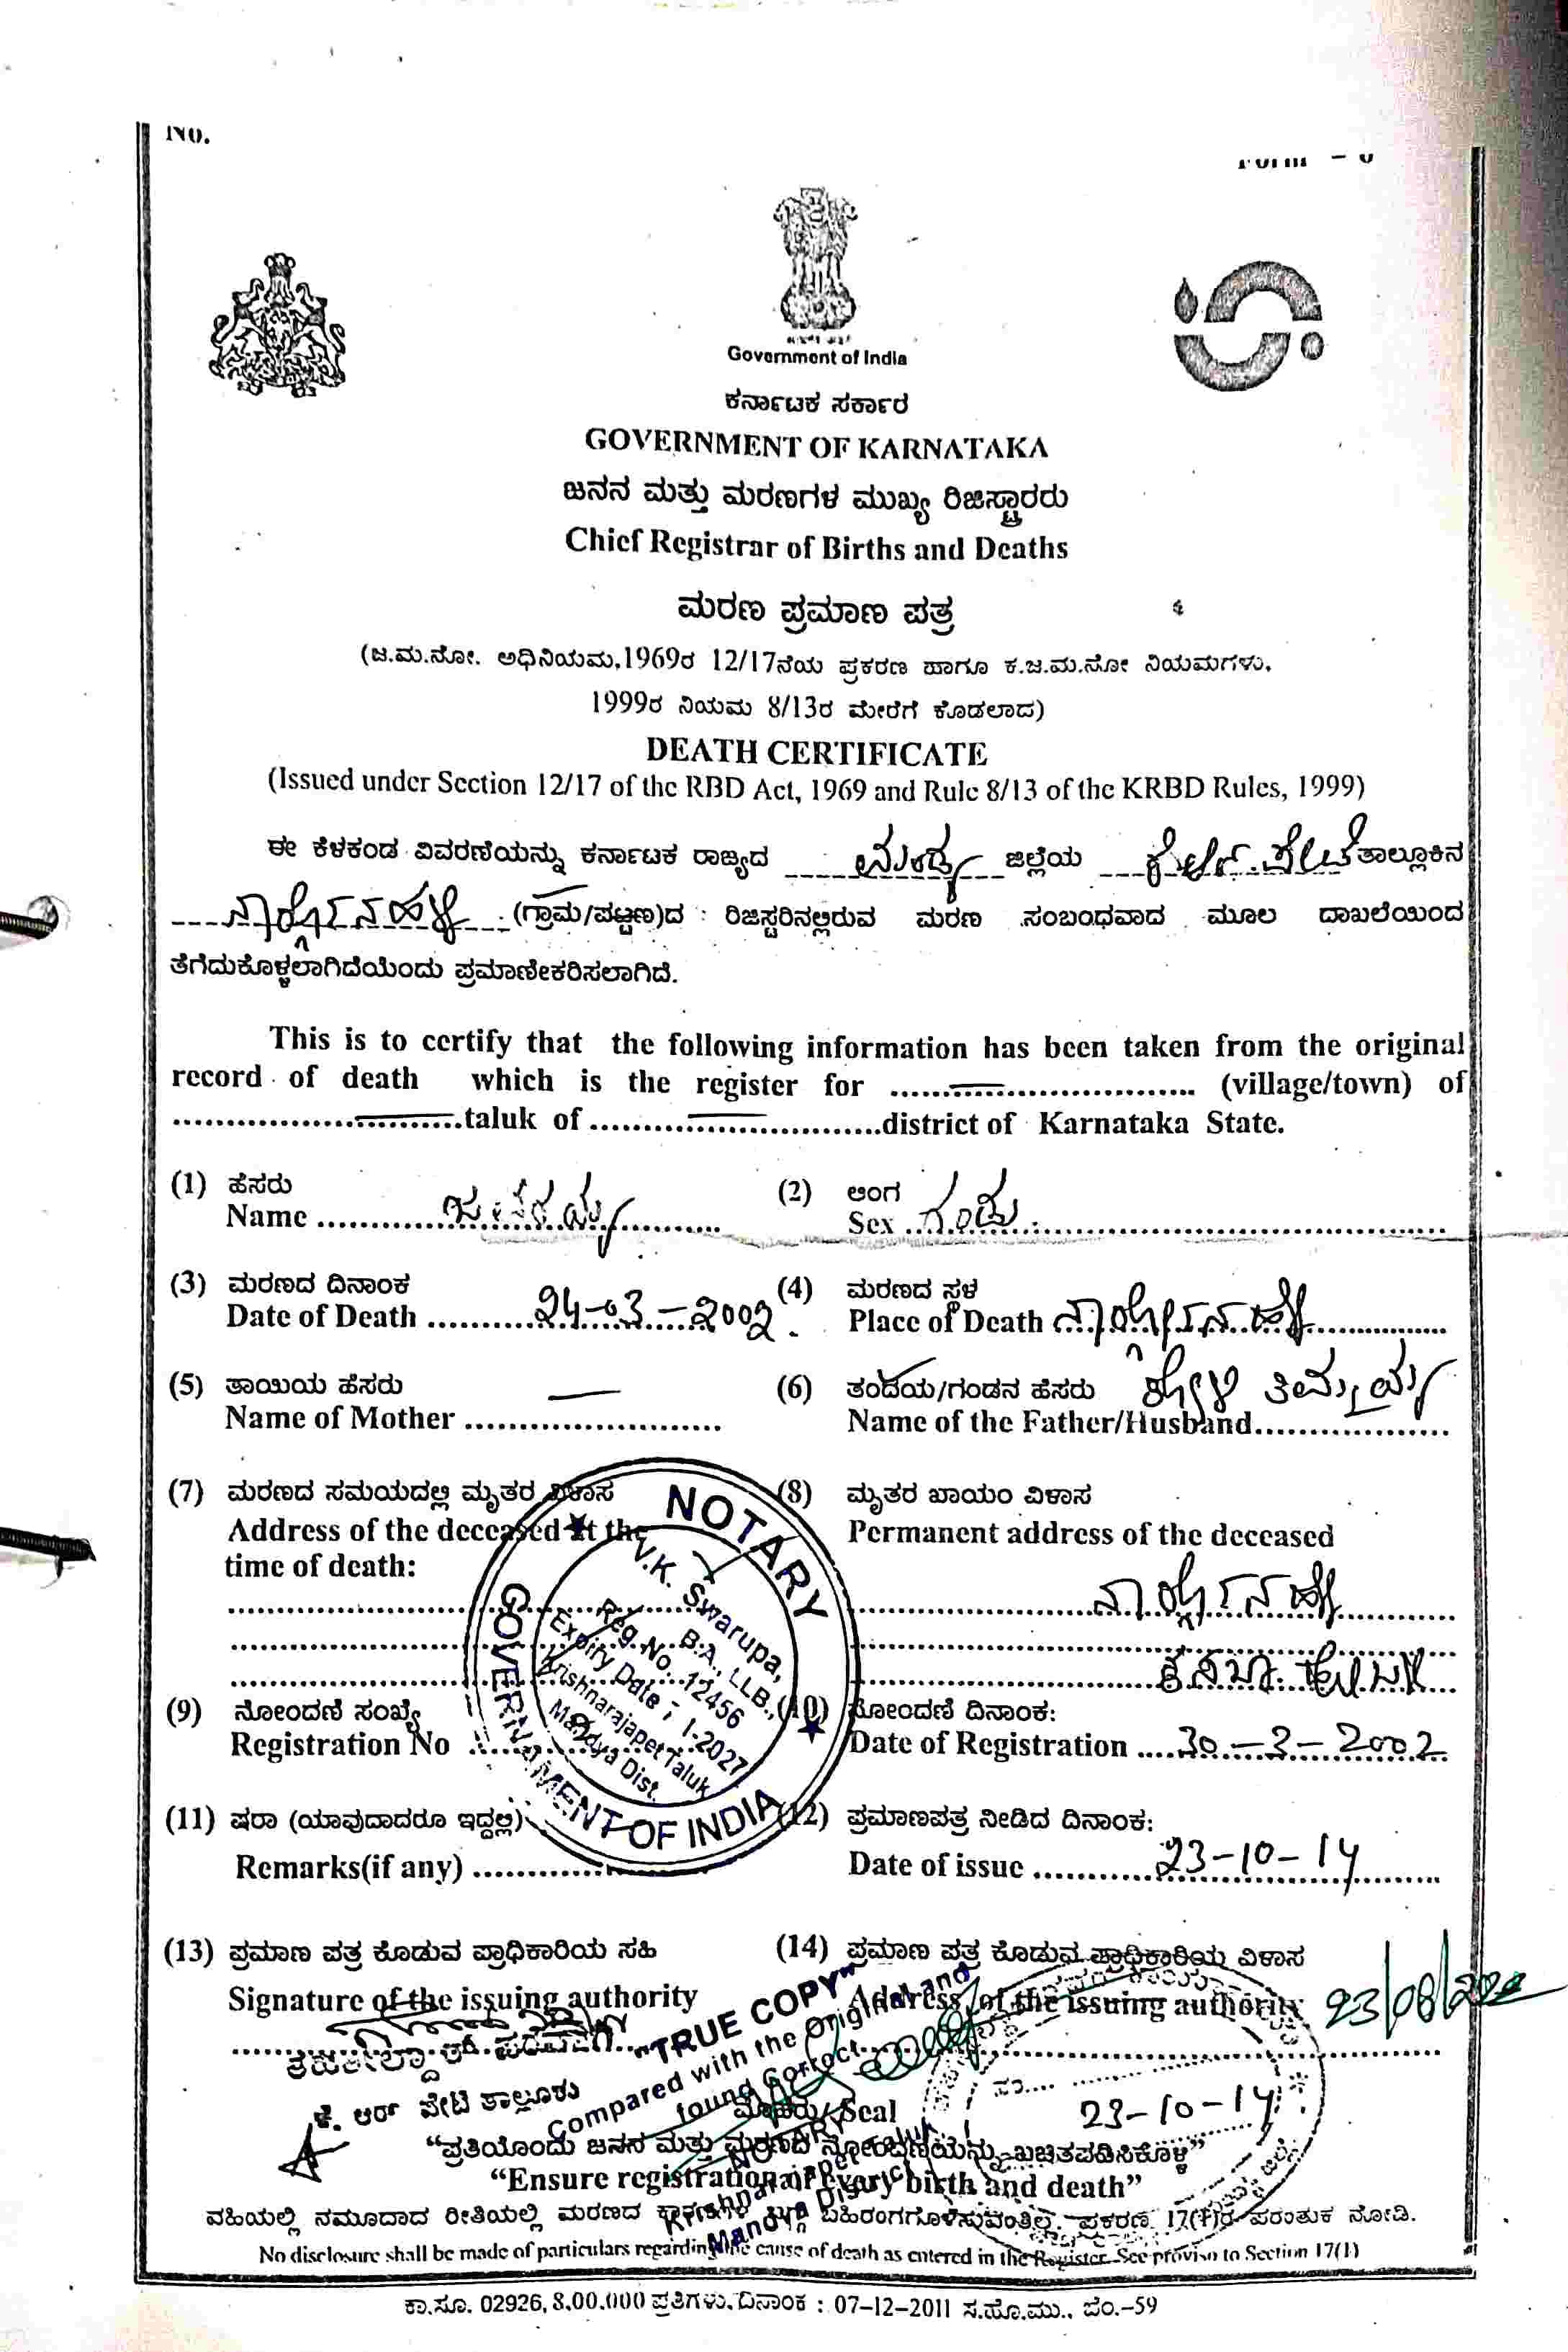 No.
Form - 6
Government of India
ಕರ್ನಾಟಕ ಸರ್ಕಾರ
GOVERNMENT OF KARNATAKA
ಜನನ ಮತ್ತು ಮರಣಗಳ ಮುಖ್ಯ ರಿಜಿಸ್ಟ್ರಾರರು
Chief Registrar of Births and Deaths
ಮರಣ ಪ್ರಮಾಣ ಪತ್ರ
(ಜ.ಮ.ನೋ. ಅಧಿನಿಯಮ,1969ರ 12/17ನೆಯ ಪ್ರಕರಣ ಹಾಗೂ ಕ.ಜ.ಮ.ನೋ ನಿಯಮಗಳು,
1999ರ ನಿಯಮ 8/13ರ ಮೇರೆಗೆ ಕೊಡಲಾದ)
DEATH CERTIFICATE
(Issued under Section 12/17 of the RBD Act, 1969 and Rule 8/13 of the KRBD Rules, 1999)
ಈ ಕೆಳಕಂಡ ವಿವರಣೆಯನ್ನು ಕರ್ನಾಟಕ ರಾಜ್ಯದ ಮಂಡ್ಯ ಜಿಲ್ಲೆಯ ಕೆ.ಆರ್.ಪೇಟೆ ತಾಲ್ಲೂಕಿನ
(ಗ್ರಾಮ/ಪಟ್ಟಣ)ದ ರಿಜಿಸ್ಟರಿನಲ್ಲಿರುವ ಮರಣ ಸಂಬಂಧವಾದ ಮೂಲ ದಾಖಲೆಯಿಂದ
ತೆಗೆದುಕೊಳ್ಳಲಾಗಿದೆಯೆಂದು ಪ್ರಮಾಣೀಕರಿಸಲಾಗಿದೆ.
This is to certify that the following information has been taken from the original
record of death which is the register for .................................. (village/town) of
.................................taluk of .................................district of Karnataka State.
(1) ಹೆಸರು (2) ಅಂಗ
Name Sex ಗಂಡು
(3) ಮರಣದ ದಿನಾಂಕ (4) ಮರಣದ ಸ್ಥಳ
Date of Death 24-03-2002 Place of Death
(5) ತಾಯಿಯ ಹೆಸರು — (6) ತಂದೆಯ/ಗಂಡನ ಹೆಸರು ತಿಮ್ಮಯ್ಯ
Name of Mother Name of the Father/Husband
(7) ಮರಣದ ಸಮಯದಲ್ಲಿ ಮೃತರ ವಿಳಾಸ (8) ಮೃತರ ಖಾಯಂ ವಿಳಾಸ
Address of the deceased at the Permanent address of the deceased
time of death:
NOTARY
GOVERNMENT OF INDIA
V.K. Swarupa,
B.A., LLB.,
Reg. No. 12456
Expiry Date : 1-2027
Krishnarajapet Taluk
Mandya Dist.
(9) ನೋಂದಣಿ ಸಂಖ್ಯೆ (10) ನೋಂದಣಿ ದಿನಾಂಕ:
Registration No Date of Registration 30-3-2002
(11) ಷರಾ (ಯಾವುದಾದರೂ ಇದ್ದಲ್ಲಿ) (12) ಪ್ರಮಾಣಪತ್ರ ನೀಡಿದ ದಿನಾಂಕ:
Remarks(if any) Date of issue 23-10-14
(13) ಪ್ರಮಾಣ ಪತ್ರ ಕೊಡುವ ಪ್ರಾಧಿಕಾರಿಯ ಸಹಿ (14) ಪ್ರಮಾಣ ಪತ್ರ ಕೊಡುವ ಪ್ರಾಧಿಕಾರಿಯ ವಿಳಾಸ
Signature of the issuing authority Address of the issuing authority
ಕೆ. ಆರ್ ಪೇಟೆ ತಾಲ್ಲೂಕು
"TRUE COPY"
Compared with the Original and
found Correct
NOTARY
Krishnarajapet Taluk
Mandya District
23-10-14
ಮೊಹರು/Seal
"ಪ್ರತಿಯೊಂದು ಜನನ ಮತ್ತು ಮರಣದ ನೋಂದಣಿಯನ್ನು ಖಚಿತಪಡಿಸಿಕೊಳ್ಳಿ"
"Ensure registration of every birth and death"
ವಹಿಯಲ್ಲಿ ನಮೂದಾದ ರೀತಿಯಲ್ಲಿ ಮರಣದ ಕಾರಣಗಳ ಬಗ್ಗೆ ಬಹಿರಂಗಗೊಳಿಸುವಂತಿಲ್ಲ. ಪ್ರಕರಣ 17(1)ರ ಪರಂತುಕ ನೋಡಿ.
No disclosure shall be made of particulars regarding the cause of death as entered in the Register. See proviso to Section 17(1)
ಕಾ.ಸೂ. 02926, 8,00,000 ಪ್ರತಿಗಳು, ದಿನಾಂಕ : 07-12-2011 ಸ.ಹೊ.ಮು., ಬೆಂ.-59